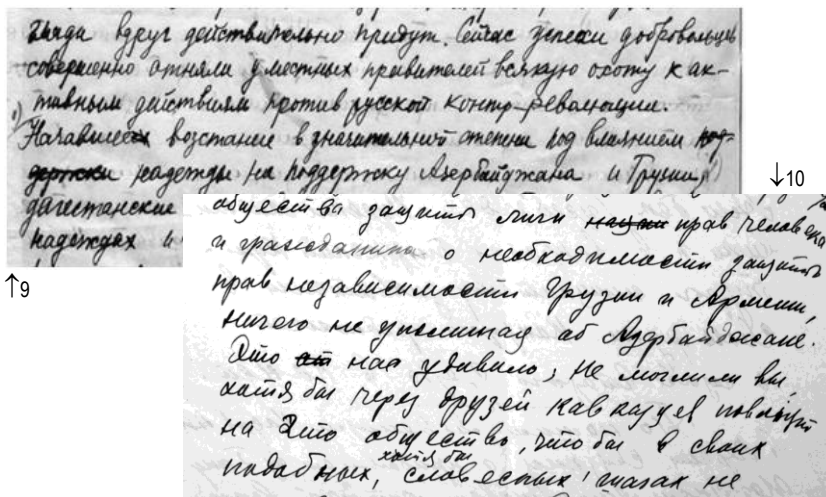 вдруг действительно придут. Сейчас успехи добровольцев
совершенно отняли у местных правителей всякую охоту к ак-
тивным действиям против русской контр-революции.
Начавшееся возстание в значительной степени под влиянием под-
держки надежды на поддержку Азербайджана и Грузии,
дагестанские
надеждах и
↑9
↓10
общества защиты лиги нации прав человека
и гражданина о необходимости защиты
прав независимости Грузии и Армении,
ничего не упоминая об Азербайджане.
Это ат нас удивило; не могли ли вы
хотя бы через друзей кавказцев повлиять
на это общество, чтобы в своих
хотя бы
подобных, словесных шагах не